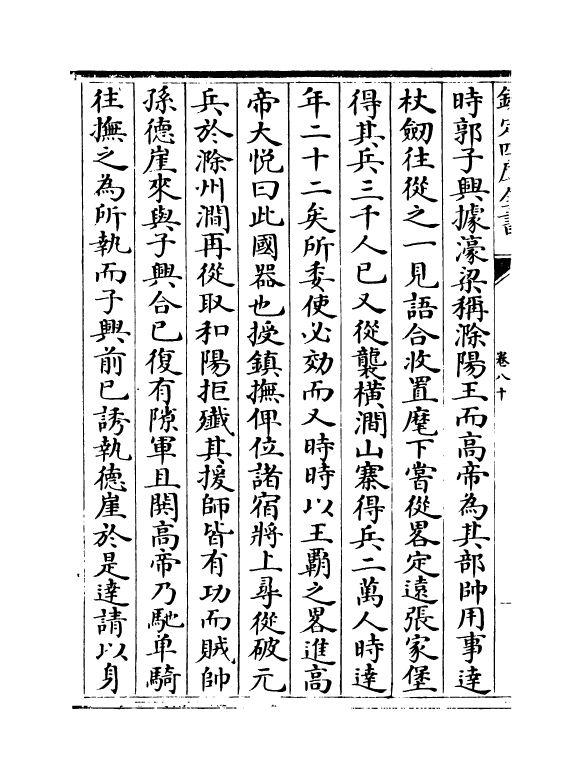 欽定四庫全書
卷八十
時郭子興據濠梁稱滁陽王而高帝為其部帥用事達
杖劒往從之一見語合收置麾下嘗從畧定遠張家堡
得其兵三千人已又從襲橫澗山寨得兵二萬人時達
年二十二矣所委使必効而又時時以王霸之畧進高
帝大悅曰此國器也授鎮撫俾位諸宿將上尋從破元
兵於滁州澗再從取和陽拒殲其援師皆有功而賊帥
孫德崖來與子興合已復有隙軍且鬨高帝乃馳单騎
往撫之為所執而子興前已誘執德崖於是達請以身